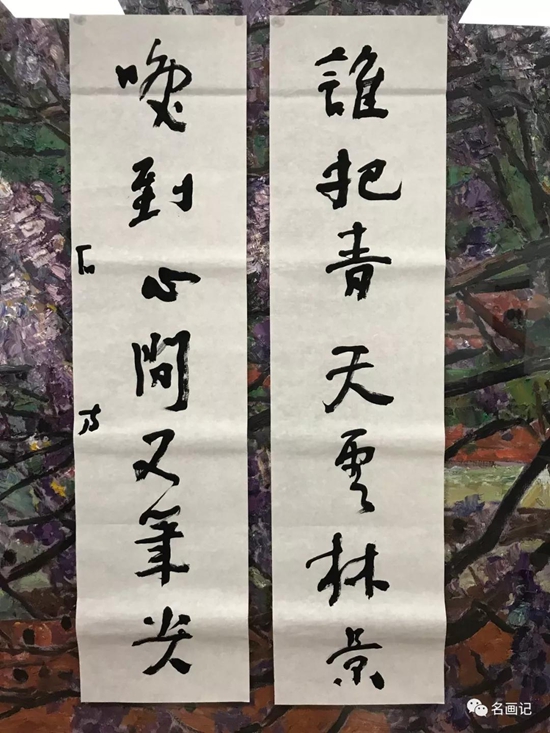 誰把青天雲林景
喚到心間又筆尖
石
名画记